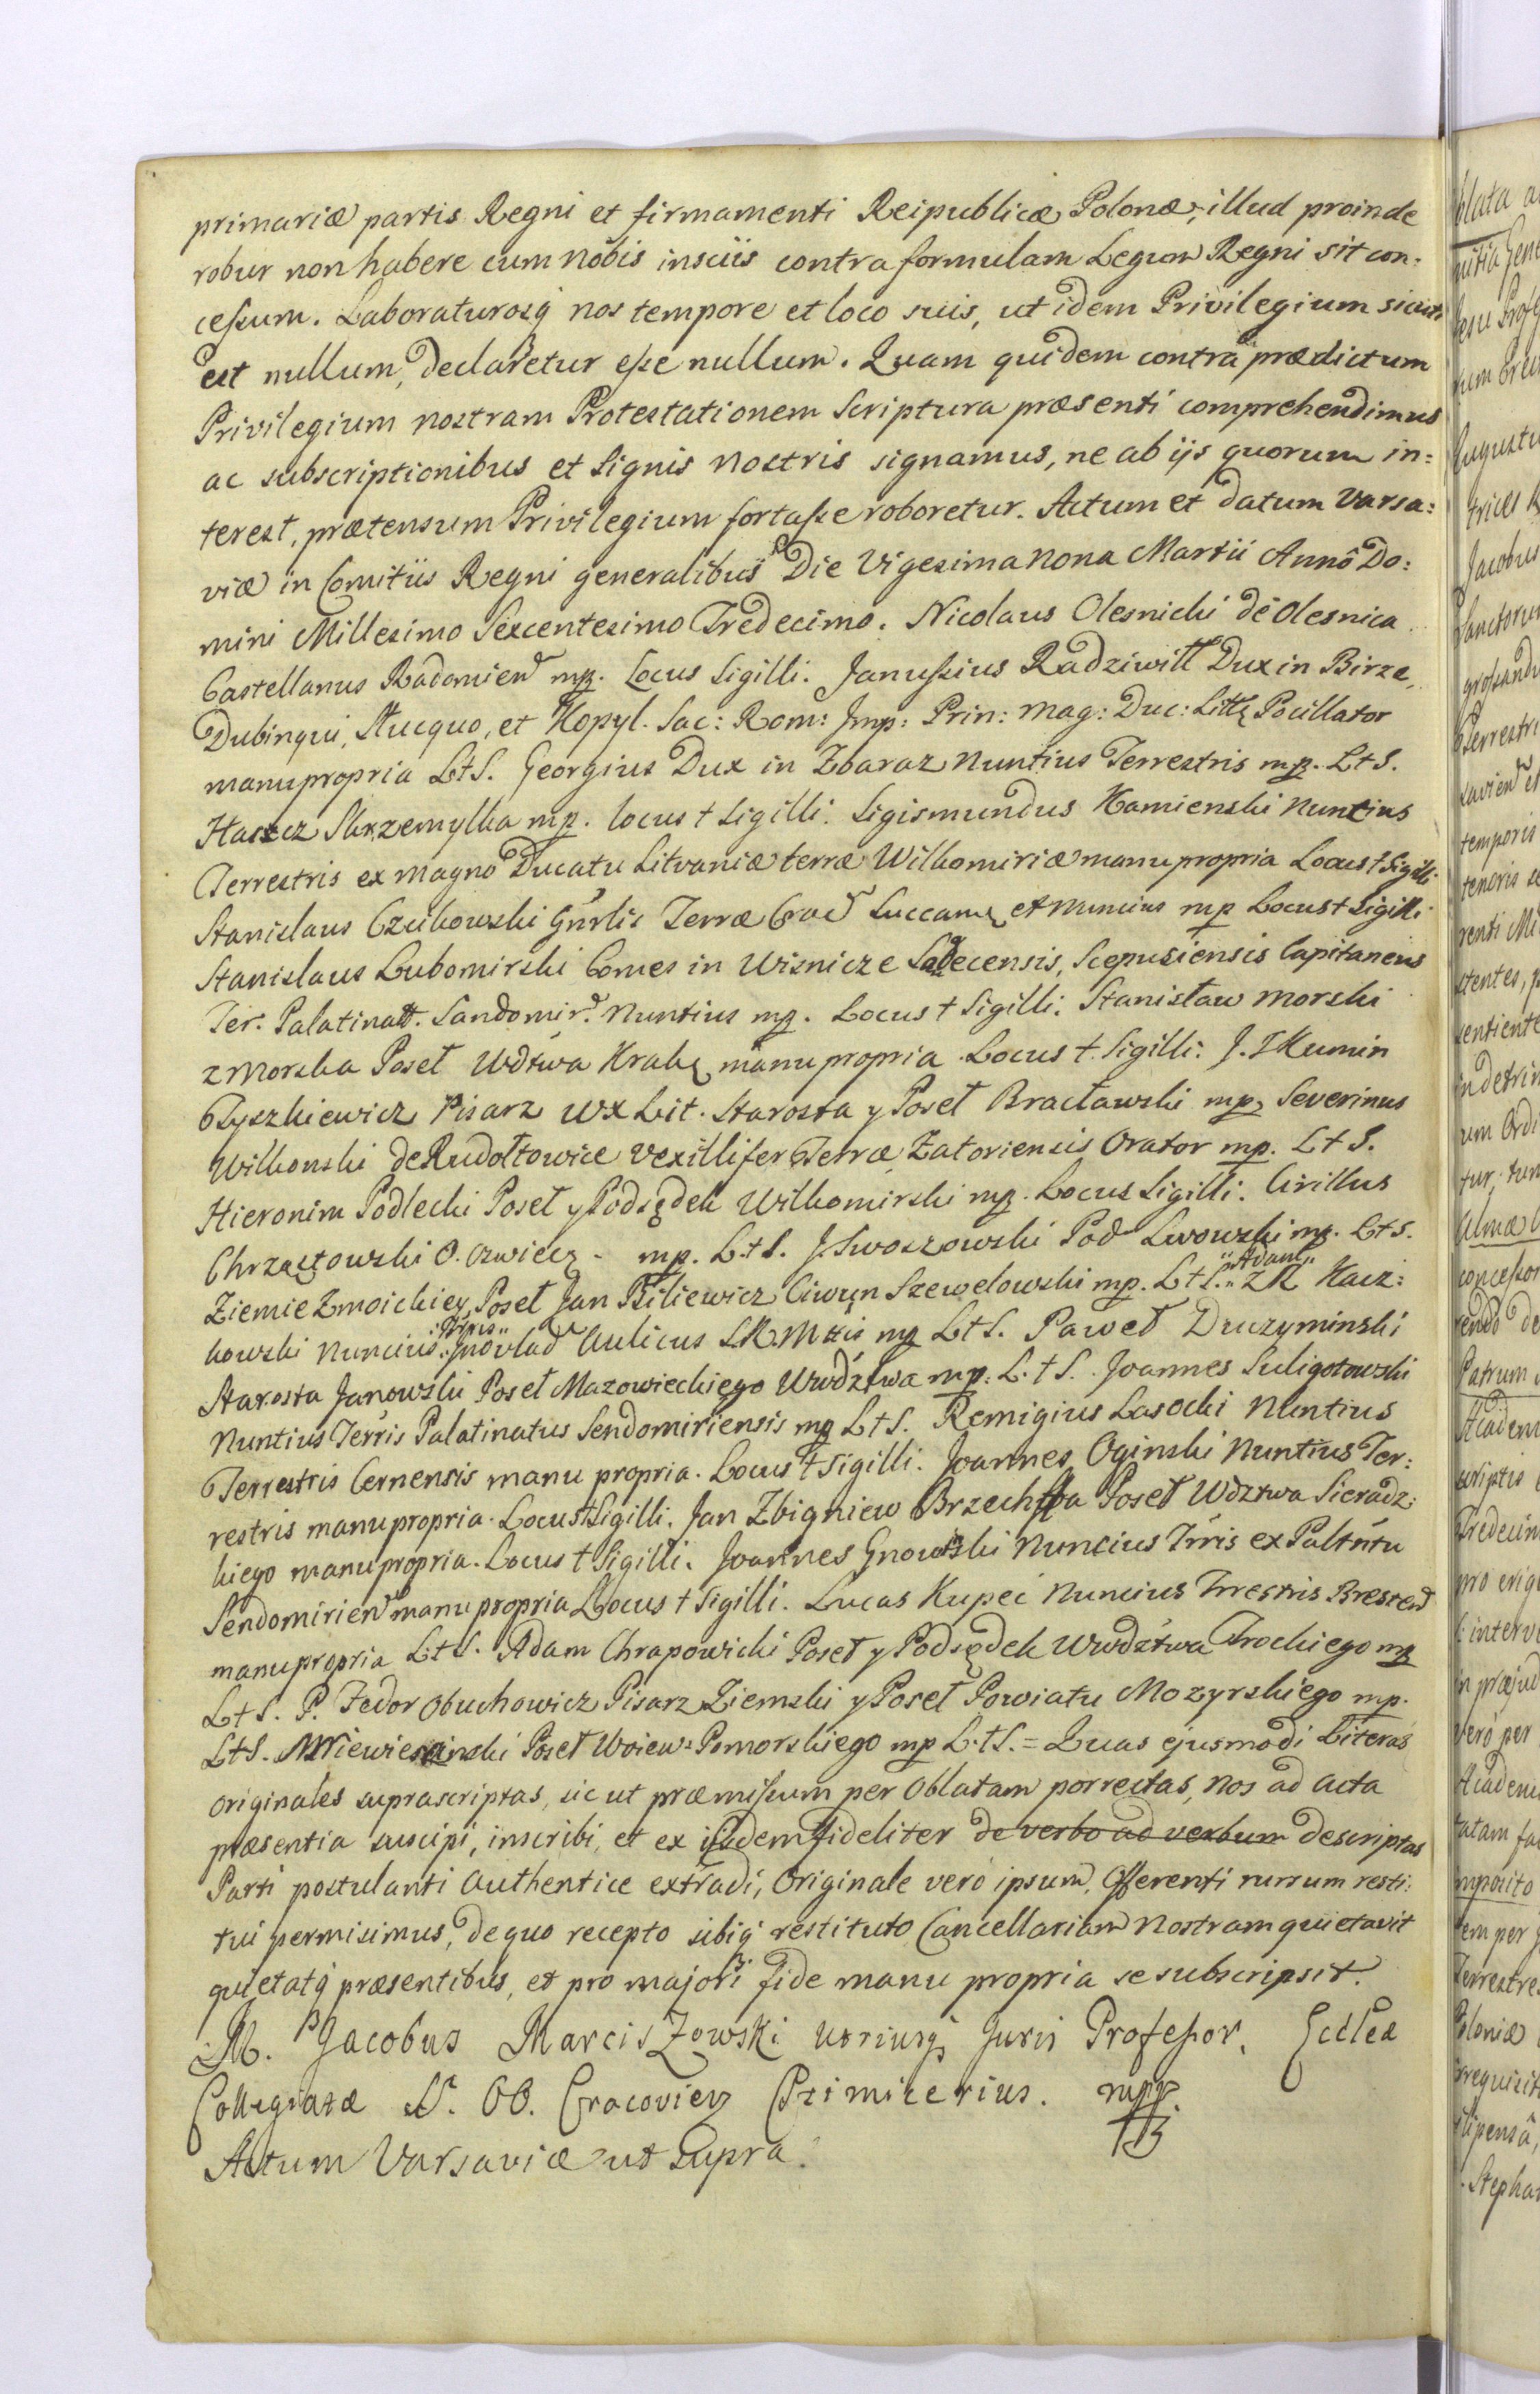 primariæ partis Regni et firmamenti Reipublicæ Polonæ, illud proinde
robur non habere cum nobis insciis contra formulam Legum Regni sit con:
cessum. Laboraturosq nos tempore et loco suis, ut idem Privilegium sicuti
est nullum, declaretur esse nullum. Quam quidem contra prædictum
Privilegium nostram Protestationem Scriptura præsenti comprehendimus
ac subscriptionibus et Signis nostris signamus, ne ab ijs quorum in:
terest, prætensum Privilegium fortasse roboretur. Actum et datum Varsa:
viæ in Comitiis Regni generalibus Die Vigesima nona Martii Annô Do:
mini Millesimo Sexcentesimo Tredecimo. Nicolaus Olesnicki de Olesnica
Castellanus Radomien mp. Locus Sigilli. Janussius Radziwiłł Dux in Birze,
Dubinqui, Slucquo, et Kopyl. Sac: Rom: Imp: Prin: Mag: Duc: Litt Pocillator
manu propria L+S. Georgius Dux in Zbaraz Nuntius Terrestris mp. L+S.
Haszcz Skrzemylka mp. locus + Sigilli. Sigismundus Kamienski Nuntius
Terrestris ex magno Ducatu Litvaniæ terræ Wilkomiriæ manu propria Locus + Sigilli.
Stanislaus Czukowski Gnrlis Terræ Crac Succam et nuncius mp Locus + Sigilli
Stanislaus Lubomirski Comes in Wisnicze Sadecensis, Scepusiensis Capitaneus
Ter. Palatinatt. Sandomir. Nuntius mp. Locus + Sigilli. Stanisław Morski
z Morska Poseł Wdztwa Krak manu propria. Locus + Sigilli. J. Skumin
Tyszkiewicz Pisarz WX Lit. Starosta y Poseł Bracławski mp Severinus
Wilkonski de Rudołtowice Vexillifer Terræ Zatoriensis Orator mp. L+S.
Hieronim Podlecki Poseł y Podsędek Wilkomirski mp. Locus Sigilli. Cirillus
Chrząstowski O. Ozwiecz - mp. L+S. J Swoszowski Pod Lwowski mp. L+S.
Ziemie Zmoickiey Poseł Jan Biliewicz Ciwun Szewelowski mp. L+S. "Adam" ZR Kacz:
kowski Nuncius Trris Inowlad Aulicus S.R. Mtis mp L+S. Paweł Druzyminski
Starosta Janowski Poseł Mazowieckiego Wwdztwa mp. L+S. Joannes Suligotowski
Nuntius Terris Palatinatus Sendomiriensis mp L+S. Remigius Lasocki Nuntius
Terrestris Cernensis manu propria. Locus + Sigilli. Joannes Oginski Nuntius Ter:
restris manu propria. Locus + Sigilli. Jan Zbigniew Brzechffa Poseł Wdztwa Sieradz:
kiego manu propria. Locus + Sigilli. Joannes Gnowski Nuncius Trris ex Paltntu
Sendomirien manu propria Locus + Sigilli. Lucas Kupeć Nuncius Trrestris Bresten
manu propria L+S. Adam Chrapowicki Poseł y Podsędek Wwdztwa Trockiego mp
L+S. P. Fedor Obuchowicz Pisarz Ziemski y Poseł Powiatu Mozyrskiego mp.
L+S. M Wiewiesinski Poseł Woiew: Pomorskiego mp L+S. = Quas ejusmodi Literas
originales suprascriptas, sicut præmissum per Oblatam porrectas, Nos ad Acta
præsentia suscipi, inscribi, et ex iisdem fideliter de verbo ad verbum descriptas
Parti postulanti Authentice extradi, Originale verò ipsum, Offerenti rursum resti:
tui permisimus, de quo recepto sibiq restituto Cancellariam Nostram quietavit
quietatq præsentibus, et pro majori fide manu propria se subscripsit.
M. Jacobus Marciszowski utriusq Juris Professor, Ecclæ
Collegiatæ SS. OO. Cracovien Primicerius. mpp.
Actum Varsaviæ ut supra.